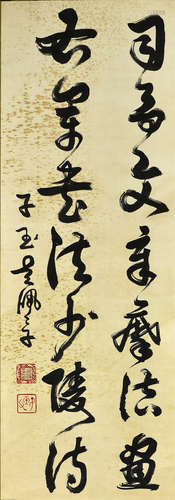 司馬文章摩詰畫
右軍書法少陵詩
子玉吳佩孚